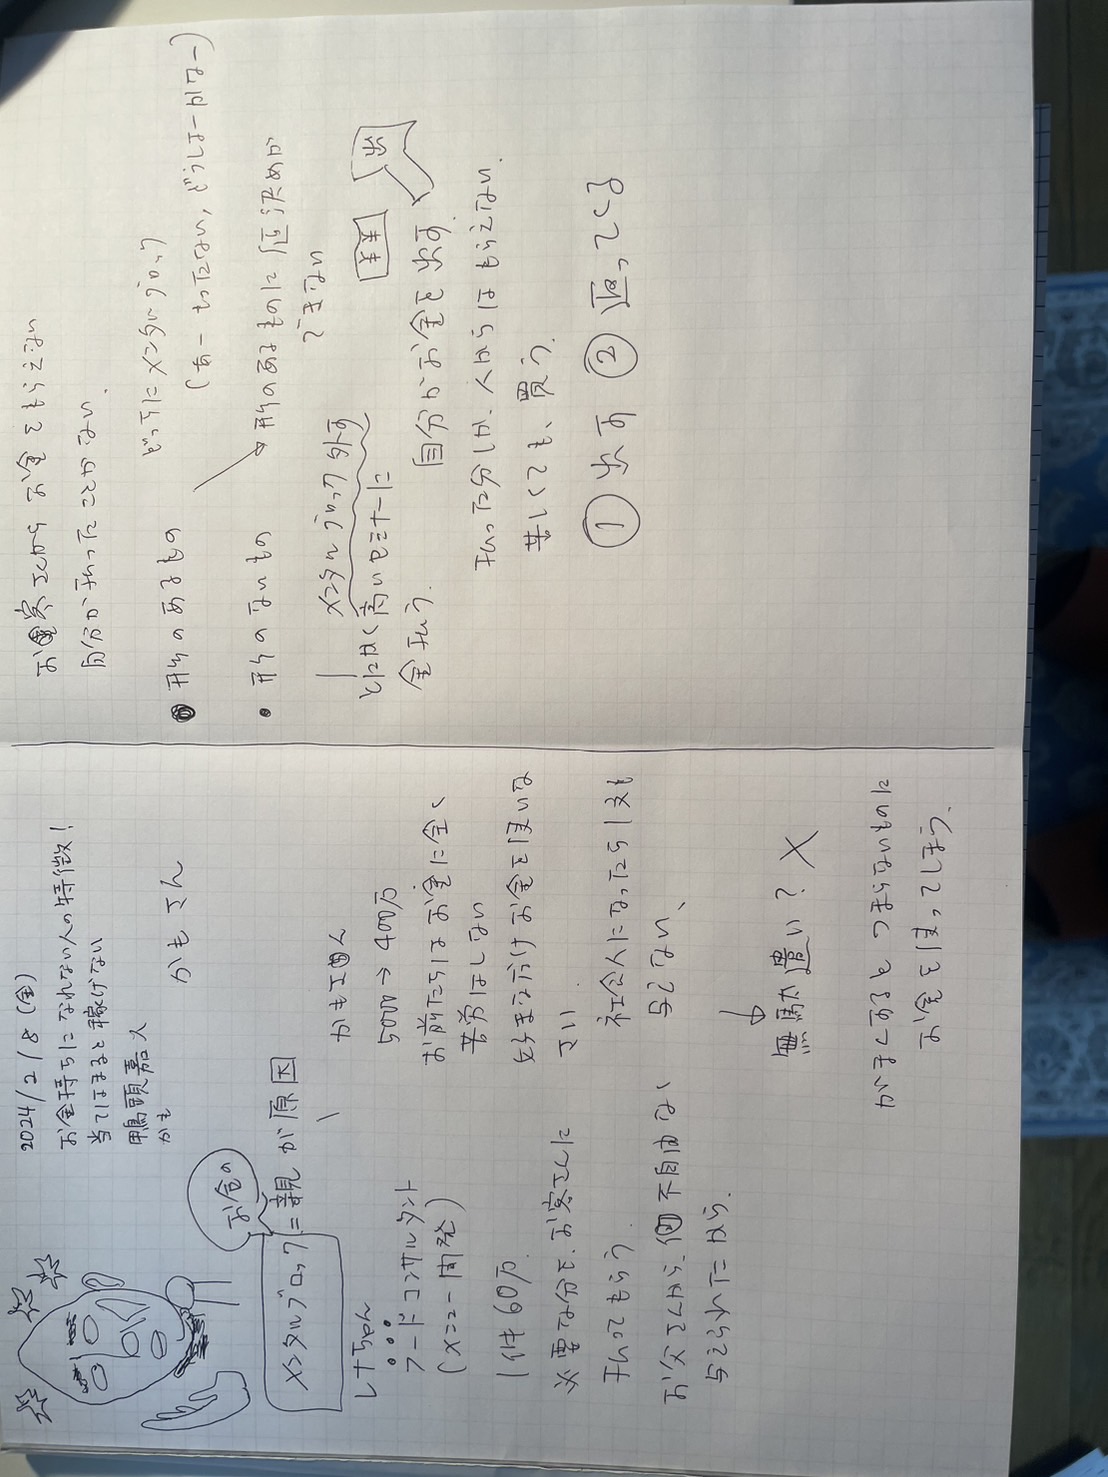 2024/2/8(金)
お金持ちになれない人の特徴!
当てはまると稼げない
鴨頭嘉人
かも
かもさん
お金の
メンタルブロック=親が原因
しすちゃん
フードコンサルタント
(メニュー開発)
1件60万
必要な分を、お客さんに
払ってもらう。
お父さんから、不自由ない
与えられたから。
かも父さん
5000→400万
お前たちはお金に全く
苦労はしない
好きなだけお金を使いな
さい
社会人になったら1文も
与えない、
無駄遣い?×
がまんするとつまらないものに
お金を使ってしまう。
お客さんからお金をもらえない
自分が払ったことがない。
・形のあるもの
どっちにメンタルブロック
(あーもったない,どうしよーかなー)
・形のないもの
形のあるものに値決めが
できない
メンタルブロック外す
とにかく高いセミナーに
金払う。
本
出
自分がお金を出す。
払った分しか、人からはもらえない。
苦しくても、買う。
①出す ②返ってくる